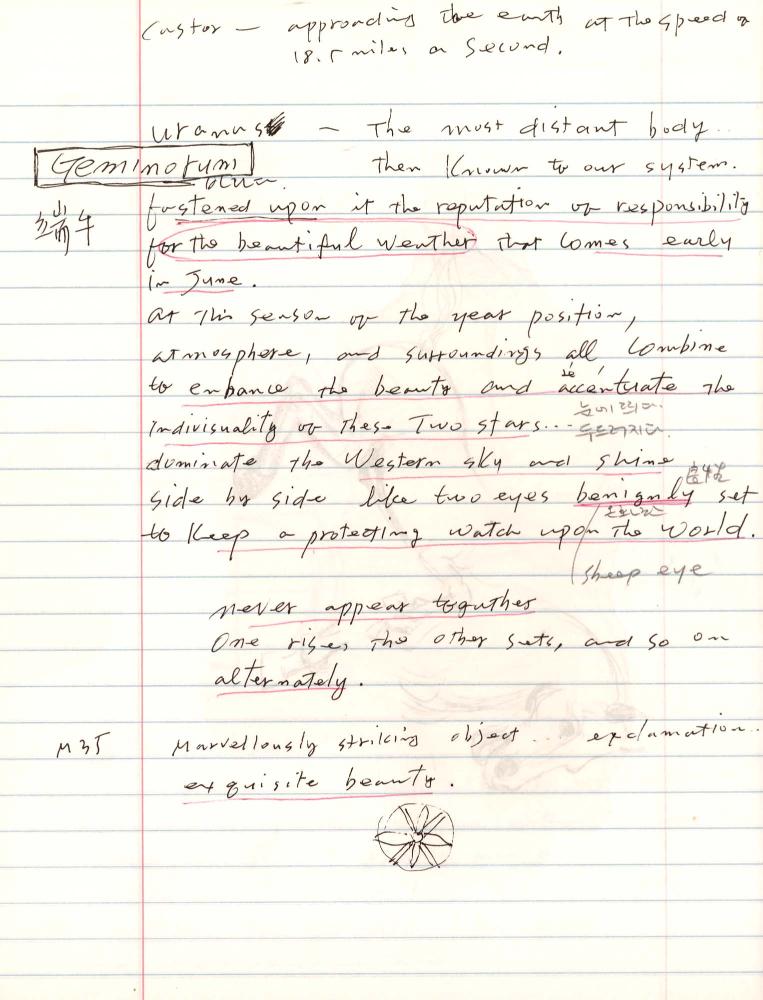 Castor — approading the earth at the speed of
18.5 miles a second.
Uranus — The most distant body..
Geminorum
then Known to our system.
端午
fastened upon it the reputation of responsibility
for the beautiful weather that comes early
in June.
at this season of the year position,
atmosphere, and surroundings all, combine
to enhance the beauty and accentuate the
눈에 띄다.
indivisuality of these Two stars...
두드러지다.
dominate the Western sky and shine
side by side like two eyes benignly set
to Keep a protecting watch upon the world.
sheep eye
never appear toguther
One rises, the other sets, and so on
alternately.
M35
Marvellously striking object ... exclamation..
exquisite beauty.